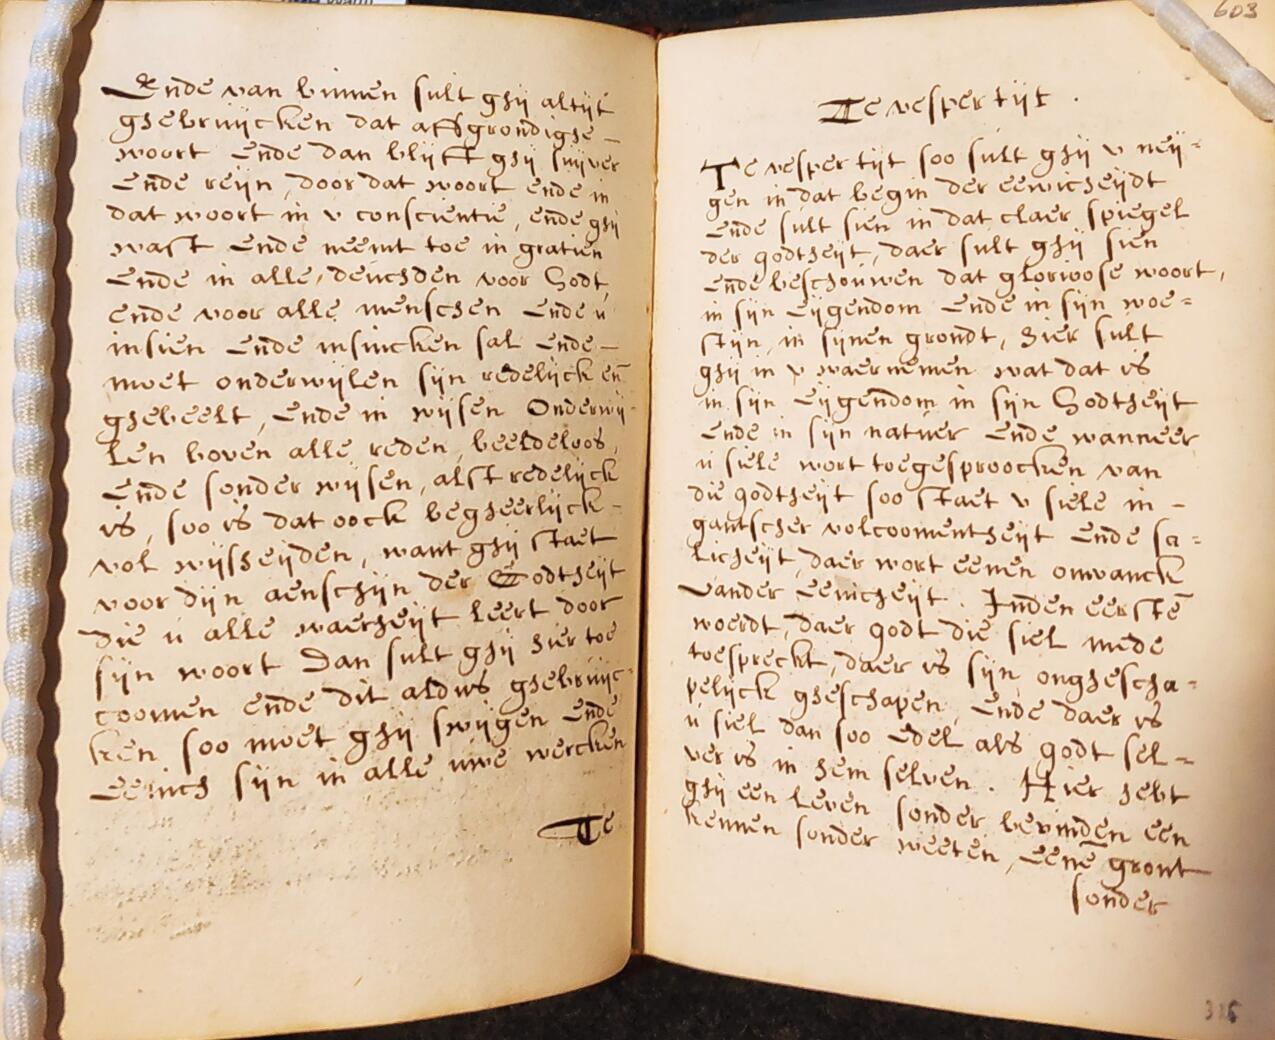 Ende van binnen sult ghij altijt
ghebruijcken dat affgrondighe
woort ende dan blijft ghij suijver
Ende reijn, door dat woort ende in
dat woort in v conscientie, ende ghij
wast Ende neemt toe in gratien
Ende in alle deuchden voor Godt
ende voor alle menschen Ende u
insien Ende insincken sal Ende
moet onderwijlen sijn redelijck en̄
ghebeelt, Ende in wijsen Onderwij-
len boven alle reden, beeldeloos,
Ende sonder wijsen, alst redelijck
is, soo is dat oock begheerlijck
vol wijsheijden, want ghij staet
voor dijn aenschijn der Godtheijt
die u alle waerheijt leert door
sijn woort Dan sult ghij hier toe
coomen ende dit aldus ghebruijc-
ken soo moet ghij swijgen Ende
Eenich sijn in alle uwe wercken
Te
603
Te vespertijt.
Te vespertijt soo sult ghij v neij=
gen in dat begin der eewicheijdt
Ende sult sien in dat claer spiegel
der godtheijt, daer sult ghij sien
Ende beschouwen dat glorioose woort,
in sijn Eijgendom Ende in sijn woe=
stijn, in sijnen grondt, hier sult
ghij in v waernemen wat dat is
in sijn Eijgendom in sijn Godtheijt
Ende in sijn natuer Ende wanneer
u siele wort toegesproocken van
die godtheijt soo staet v siele in
gantscher volcoomentheijt Ende sa=
licheijt, daer wort eenen omvanck
Vander Eenicheijt. Inden eerstē
woerdt, daer godt die siel mede
toespreckt, daer is sijn onghescha=
pelijck gheschapen, Ende daer is
u siel dan soo Edel als godt sel=
ver is in hem selven. Hier hebt
ghij een leven sonder bevinden een
kennen sonder weeten, Eenē gront
sonder